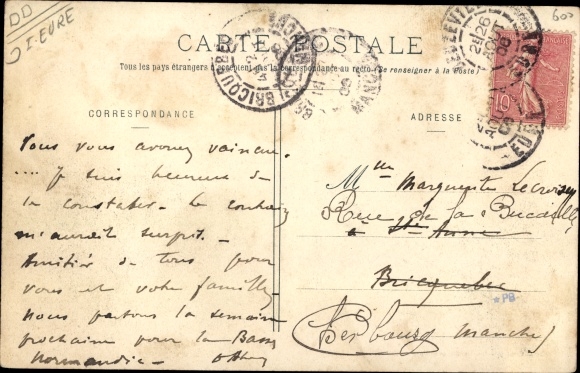 DD
ST-EURE
600
CARTE POSTALE
Tous les pays étrangers n'acceptent pas la correspondance au recto (Se renseigner à la Poste)
CORRESPONDANCE
ADRESSE
BRICQUEBEC
MANCHE
EURE
10
Vous vous avouez vaincue.
.... Je suis heureux de
la constater. Le contraire
m'aurait surpris. -
Amitiés de tous pour
vous et votre famille.
Nous partons la semaine
prochaine pour la Basse
Normandie -
Mlle Marguerite
Rue de la Bucaille
a Ste Anne
Bricquebec
Cherbourg (Manche)
PB